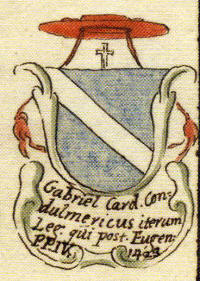 Gabriel Card. Con-
dulmericus iterum
Leg. qui post. Eugen:
PP.IV. 1423